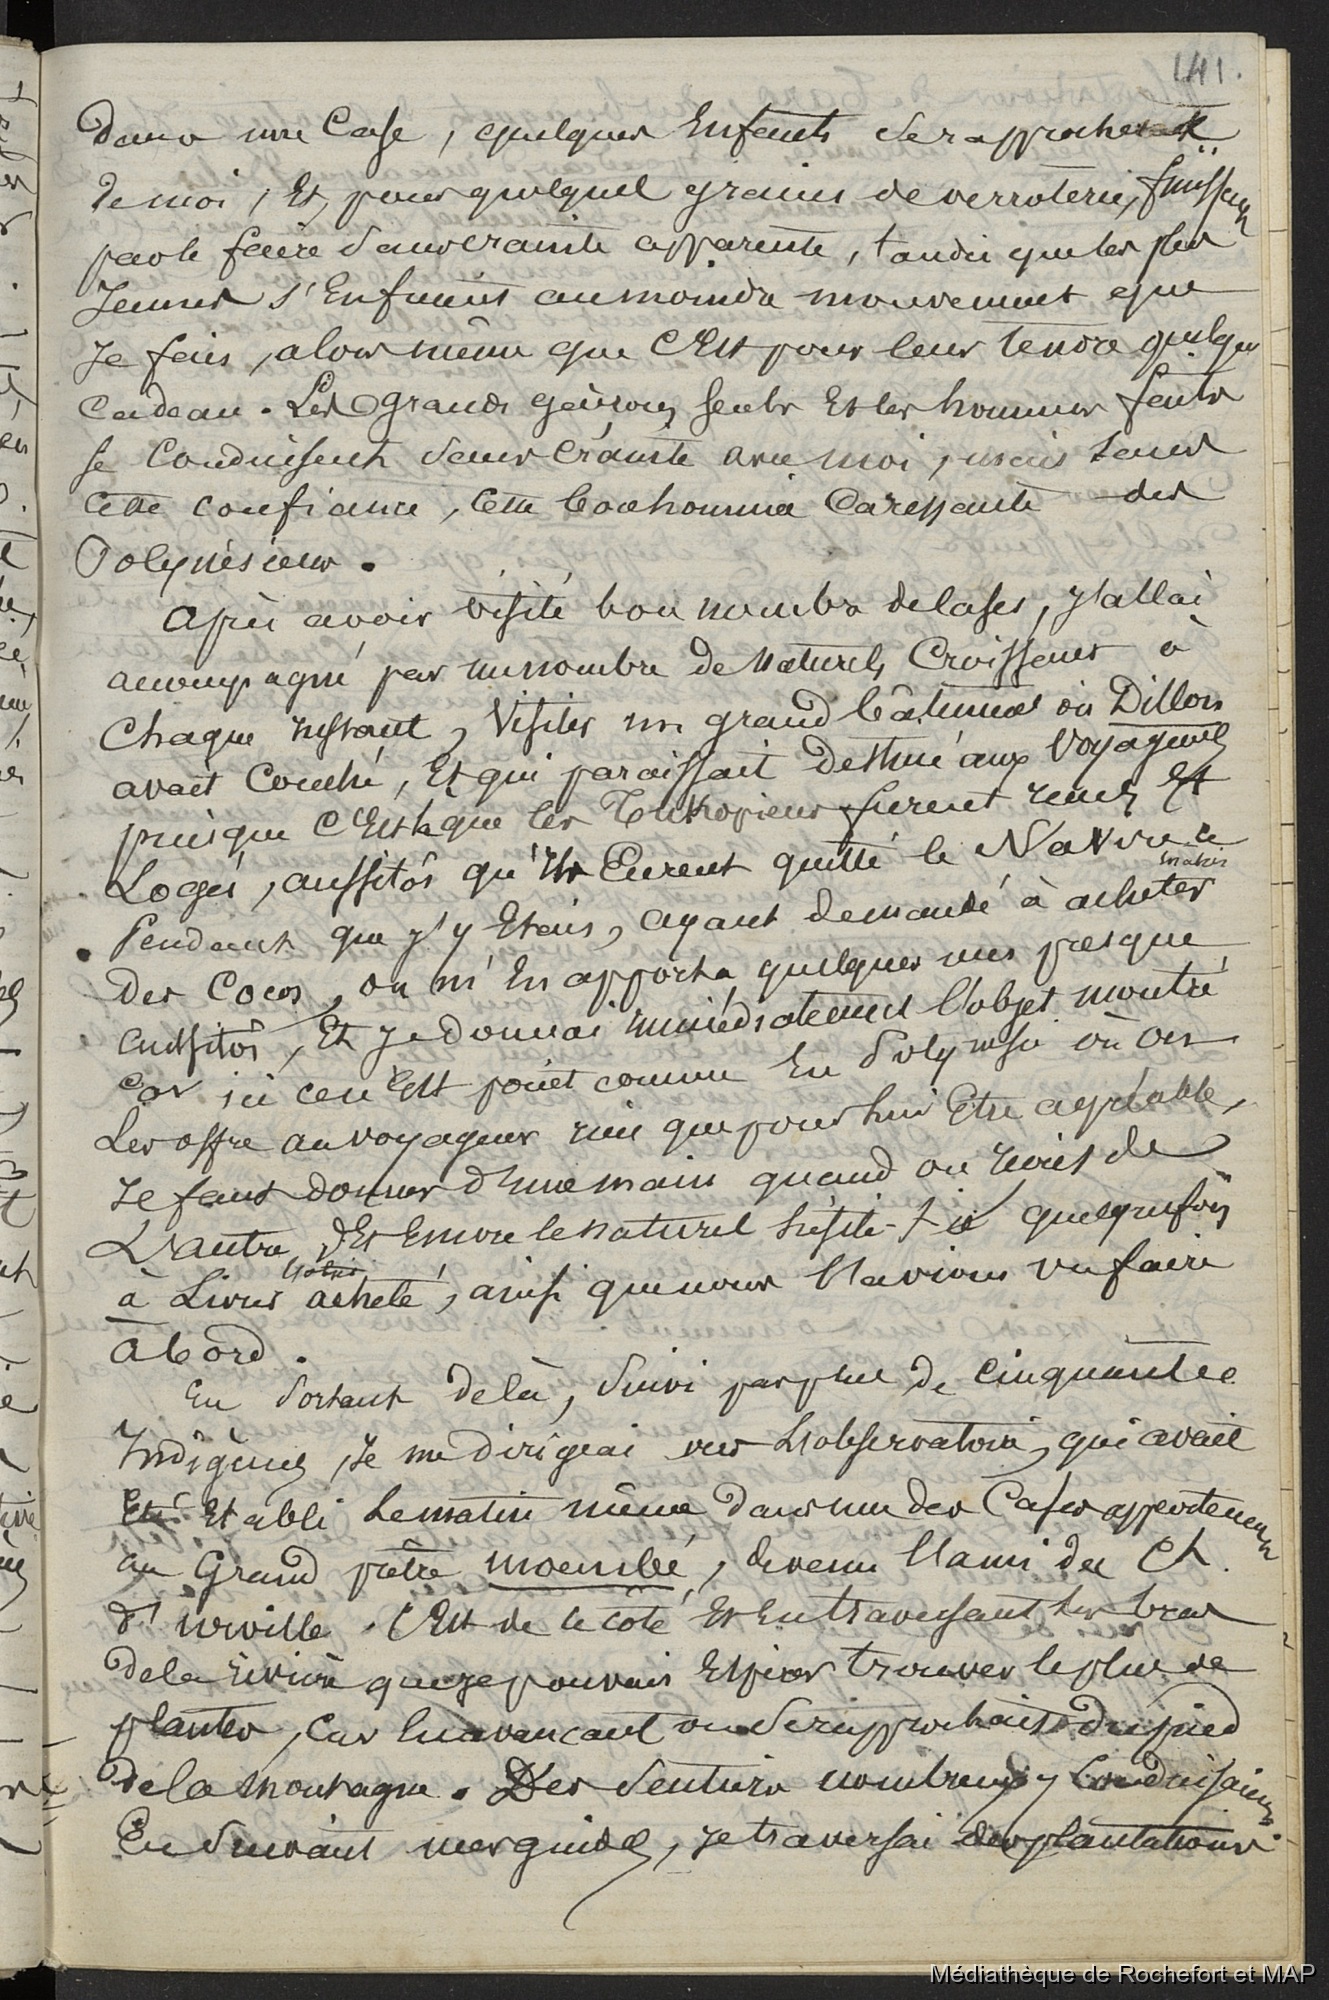 141.
Dans une Case, quelques Enfants se rapprochent
de moi, Et, pour quelques grains de verroterie, finissent
par le faire sans crainte apparente, tandis que les plus
Jeunes s'Enfuient au moindre mouvement que
Je fais, alors même que C'Est pour leur tendre quelque
Cadeau. Les grands garçons seuls Et les hommes faits
se Conduisent sans Crainte avec moi, mais sans
Cette confiance, Cette bonhommie Caressante des
Polynésiens.
Après avoir visité bon nombre de Cases, J'allai
accompagné par un nombre de Naturels Croissant à
Chaque Instant, Visiter un grand bâtiment où Dillon
avait Couché, Et qui paraissait Destiné aux Voyageurs
puisque C'Est là que les Tukopiens furent reçus Et
Logés, aussitôt qu'Ils Eurent quitté le Navire ce
matin
Pendant que J'y Etais, ayant demandé à acheter
Des Cocos, on m'En apporta quelques uns presque
aussitôt, Et Je donnai immédiatement l'objet montré
Car ici ce n'Est point comme En Polynésie où on
Les offre au voyageur rien que pour lui Etre agréable,
Il faut donner d'une main quand on reçoit de
L'autre, Et Encore le naturel hésite-t-il quelquefois
à Livrer l'objet acheté, ainsi que nous l'avions vu faire
à bord.
En Sortant de là, Suivi par plus de Cinquante
Indigènes, Je me Dirigeai vers L'observatoire, qui avait
Eté Etabli Le matin même Dans une des Cases appartenant
au Grand prêtre moembé, devenu l'ami du Ct.
d'urville. C'Est de ce côté Et En traversant les bras
De la rivière que Je pouvais Espérer trouver le plus de
plantes, Car En avançant on Se rapprochait Du pied
De la Montagne. Des Sentiers nombreux y Conduisaient.
En Suivant mes guides, Je traversai des plantations
Médiathèque de Rochefort et MAP